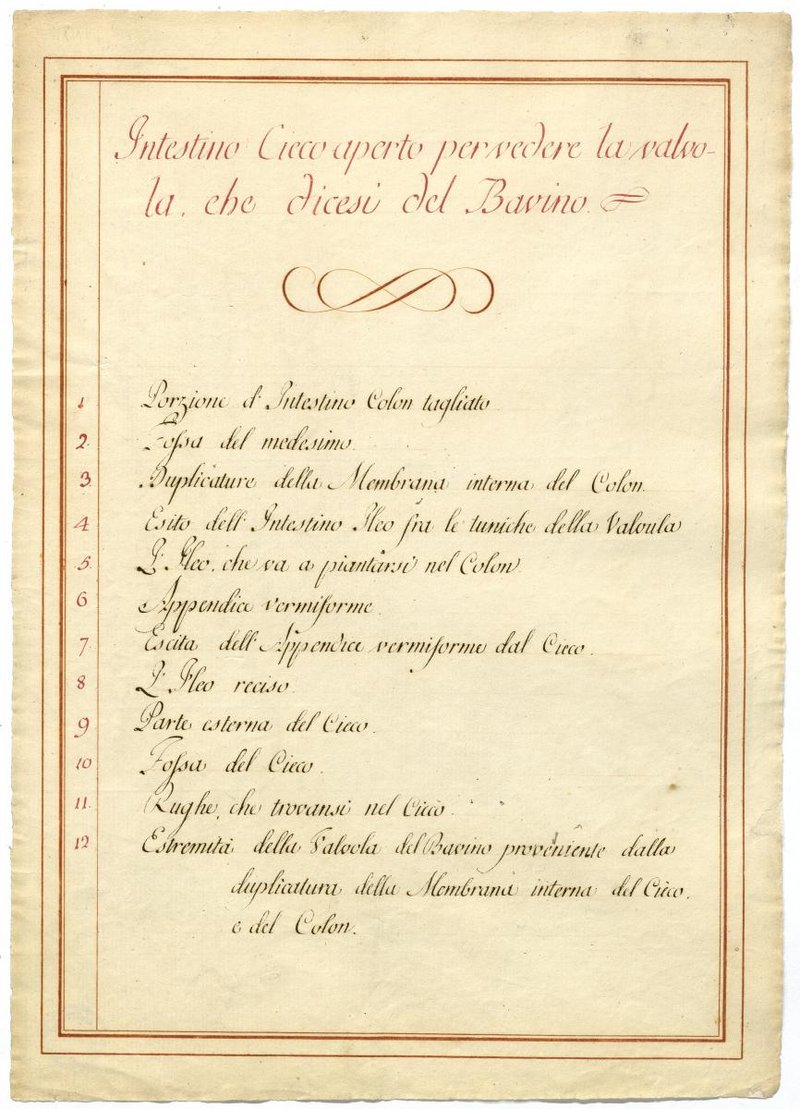 Intestino Cieco aperto per vedere la valvo-
la, che dicesi del Bavino.
1 Porzione d' Intestino Colon tagliato
2 Fossa del medesimo.
3 Duplicature della Membrana interna del Colon.
4 Esito dell' Intestino Ileo fra le tuniche della Valvula
5. L' Ileo, che va a piantarsi nel Colon.
6 Appendice vermiforme.
7. Escita dell' Appendice vermiforme dal Cieco.
8 L' Ileo reciso.
9 Parte esterna del Cieco.
10 Fossa del Cieco.
11. Rughe, che trovansi nel Cieco.
12 Estremità della Valvola del Bavino proveniente dalla
duplicatura della Membrana interna del Cieco,
e del Colon.